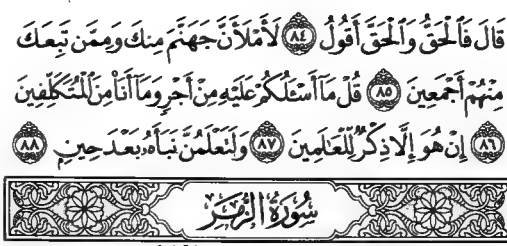 قَالَ فَٱلْحَقُّ وَٱلْحَقَّ أَقُولُ ٨٤ لَأَمْلَأَنَّ جَهَنَّمَ مِنكَ وَمِمَّن تَبِعَكَ
مِنْهُمْ أَجْمَعِينَ ٨٥ قُلْ مَآ أَسْـَٔلُكُمْ عَلَيْهِ مِنْ أَجْرٍ وَمَآ أَنَا۠ مِنَ ٱلْمُتَكَلِّفِينَ
٨٦ إِنْ هُوَ إِلَّا ذِكْرٌ لِّلْعَـٰلَمِينَ ٨٧ وَلَتَعْلَمُنَّ نَبَأَهُۥ بَعْدَ حِينٍۭ ٨٨
سُورَةُ الزُّمَرِ